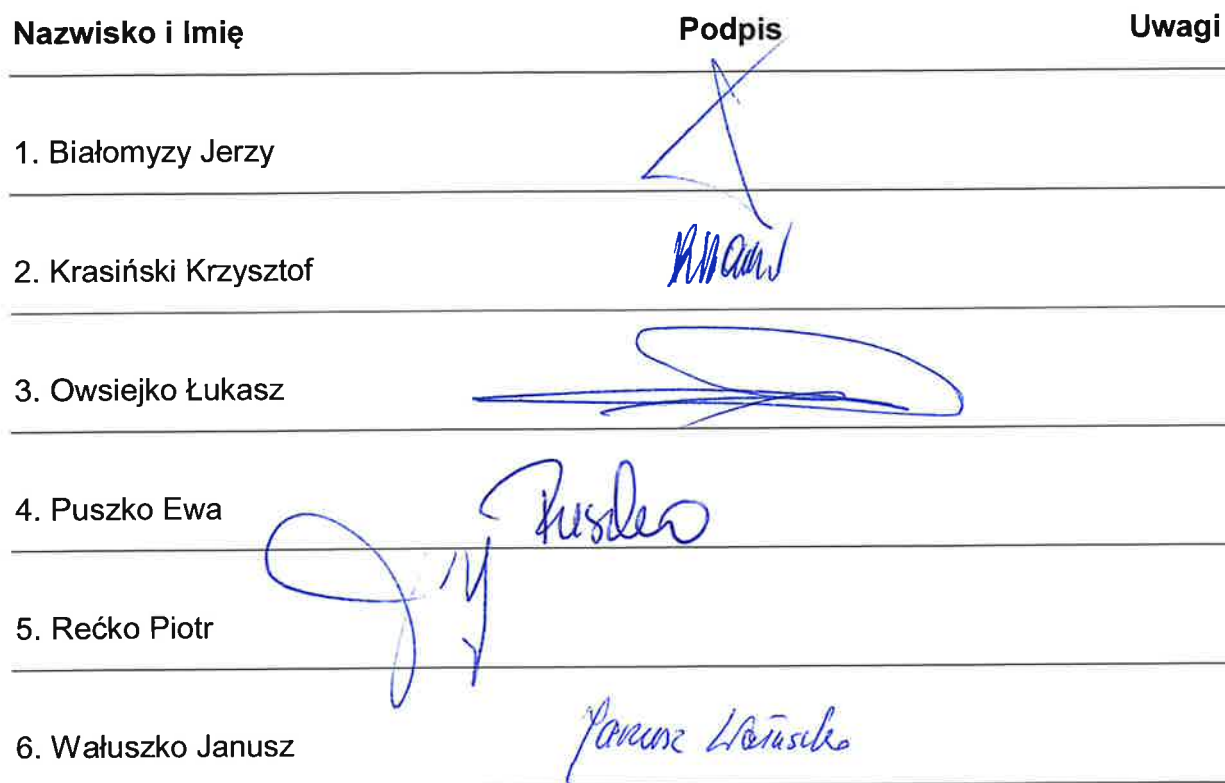 Nazwisko i Imię Podpis Uwagi
1. Białomyzy Jerzy
2. Krasiński Krzysztof
3. Owsiejko Łukasz
4. Puszko Ewa Puszko
5. Rećko Piotr
6. Wałuszko Janusz Janusz Wałuszko